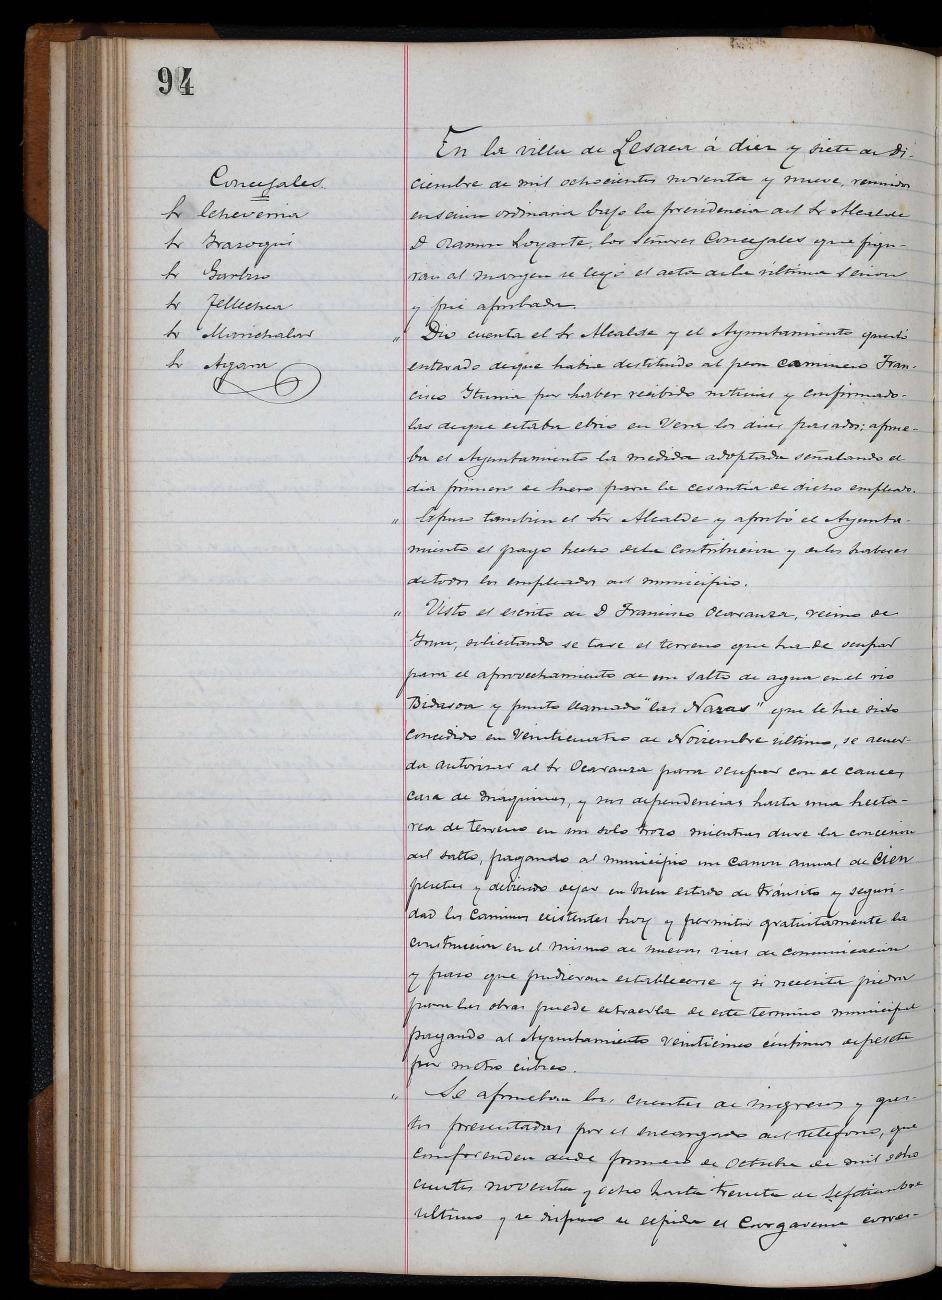 94
Concejales
Sr Echeverria
Sr Irazoqui
Sr Garbiso
Sr Tellechea
Sr Marichalar
Sr Apara
En la villa de Lesaca á diez y siete de Di-
ciembre de mil ochocientos noventa y nueve, reunidos
en sesion ordinaria bajo la presidencia del Sr Alcalde
D Ramon Loyarte, los Señores Concejales que figu-
ran al margen se leyó el acta de la última sesion
y fué aprobada.
" Dio cuenta el Sr Alcalde y el Ayuntamiento quedó
enterado de que habia destituido al peon caminero Fran-
cisco Iturria por haber recibido noticias y confirmado-
las de que estaba ebrio en Vera los dias pasados: aprue-
ba el Ayuntamiento la medida adoptada señalando el
dia primero de Enero para la cesantia de dicho empleado.
" Expuso tambien el Sr Alcalde y aprobó el Ayunta-
miento el pago hecho de la Contribucion y de los haberes
de todos los empleados del municipio.
" Visto el escrito de D Francisco Ocaranza, vecino de
Irun, solicitando se tase el terreno que ha de ocupar
para el aprovechamiento de un salto de agua en el rio
Bidasoa y punto llamado "las Nazas" que le fue sido
concedido en Veinticuatro de Noviembre último, se acuer-
da autorizar al Sr Ocaranza para ocupar con el cauce,
casa de maquinas, y sus dependencias hasta una hecta-
rea de terreno en un solo trozo mientras dure la concesion
del salto, pagando al municipio un canon anual de cien
pesetas y debiendo dejar en buen estado de tránsito y seguri-
dad los caminos existentes hoy y permitir gratuitamente la
construccion en el mismo de nuevas vias de comunicacion
y paso que pudieran establecerse y si necesita piedra
para las obras puede extraerla de este termino municipal
pagando al Ayuntamiento veinticinco céntimos de peseta
por metro cúbico.
" Se aprueban las cuentas de ingresos y gas-
tos presentadas por el encargado del teléfono, que
comprenden desde primero de Octubre de mil ocho
cientos noventa y ocho hasta treinta de Septiembre
último y se dispuso se expida el Cargareme corres-